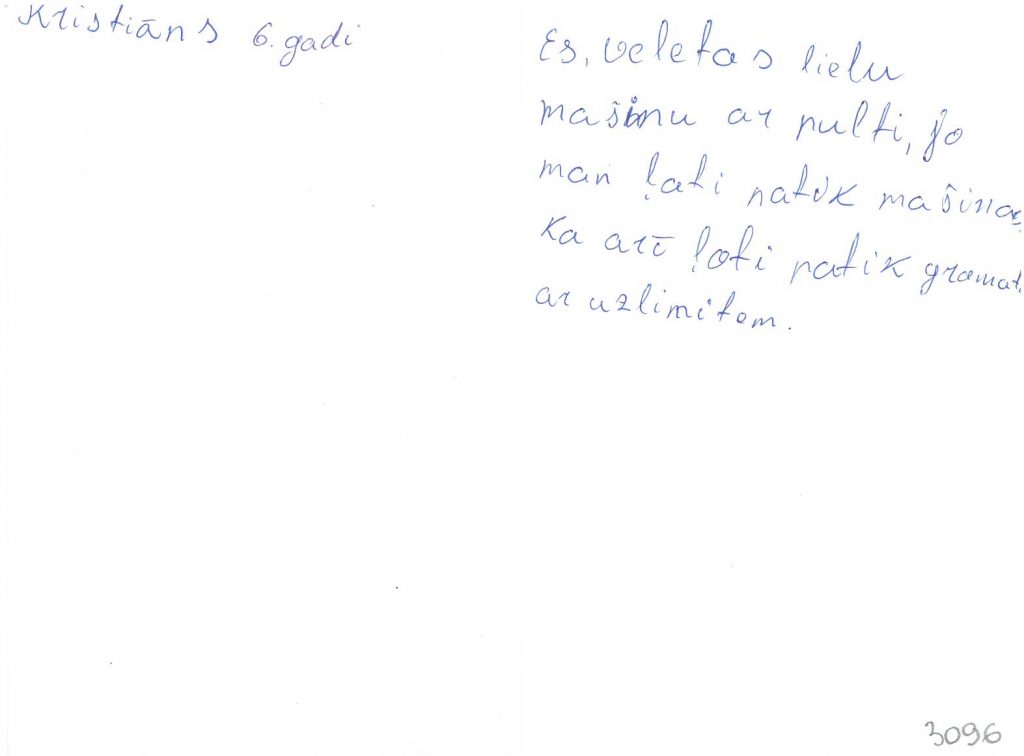 Kristiāns 6. gadi
Es, veletas lielu
mašinu ar pulti, jo
man ļati patik mašinas,
Ka arī ļoti patik gramat
ar uzlimitem.
3096